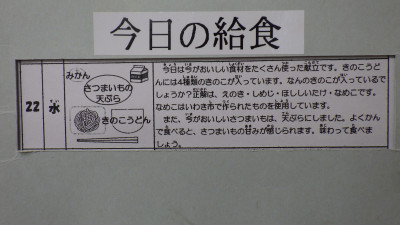 今日の給食
22
水
みかん
さつまいもの
天ぷら
きのこうどん
今日は今がおいしい食材をたくさん使った献立です。きのこうど
んには4種類のきのこが入っています。なんのきのこが入っているで
しょうか？正解は、えのき・しめじ・ほししいたけ・なめこです。
なめこはいわき市で作られたものを使用しています。
また、今がおいしいさつまいもは、天ぷらにしました。よくかん
で食べると、さつまいもの甘みが感じられます。味わって食べま
しょう。